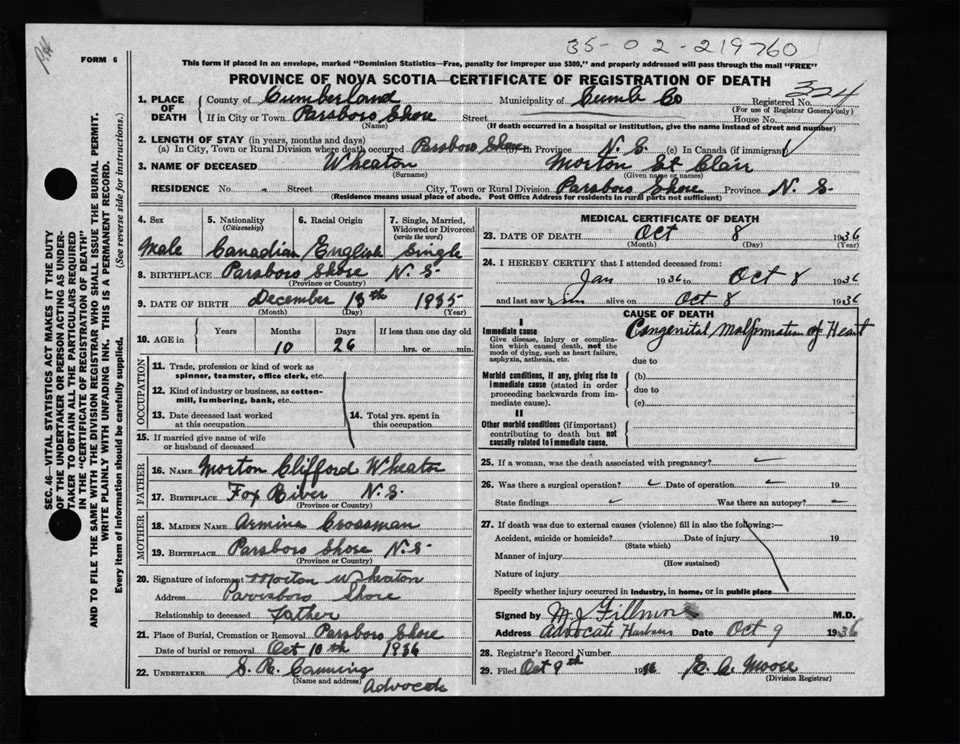 35-02-219760
FORM 6
This form if placed in an envelope, marked "Dominion Statistics—Free, penalty for improper use $300," and properly addressed will pass through the mail "FREE"
PROVINCE OF NOVA SCOTIA—CERTIFICATE OF REGISTRATION OF DEATH
324
1. PLACE OF DEATH County of Cumberland Municipality of Cumb Co Registered No.
(For use of Registrar General only)
If in City or Town Parsboro Shore Street House No.
(Name) (If death occurred in a hospital or institution, give the name instead of street and number)
2. LENGTH OF STAY (in years, months and days)
(a) In City, Town or Rural Division where death occurred Parsboro Shore (b) in Province N. S. (c) In Canada (if immigrant) ✓
3. NAME OF DECEASED Wheaton Morton St Clair
(Surname) (Given name or names)
RESIDENCE No. Street City, Town or Rural Division Parsboro Shore Province N. S.
(Residence means usual place of abode. Post Office Address for residents in rural parts not sufficient)
4. Sex 5. Nationality (Citizenship) 6. Racial Origin 7. Single, Married, Widowed or Divorced (write the word)
Male Canadian English Single
8. BIRTHPLACE Parsboro Shore N. S
(Province or Country)
9. DATE OF BIRTH December 13th 1935
(Month) (Day) (Year)
10. AGE in Years Months Days If less than one day old
10 26 hrs. or min.
OCCUPATION
11. Trade, profession or kind of work as spinner, teamster, office clerk, etc.
12. Kind of industry or business, as cotton-mill, lumbering, bank, etc.
13. Date deceased last worked at this occupation 14. Total yrs. spent in this occupation
15. If married give name of wife or husband of deceased
FATHER
16. NAME Morton Clifford Wheaton
17. BIRTHPLACE Fox River N. S.
(Province or Country)
MOTHER
18. MAIDEN NAME Armina Crossman
19. BIRTHPLACE Parsboro Shore N. S
(Province or Country)
20. Signature of informant Morton Wheaton
Address Parrsboro Shore
Relationship to deceased Father
21. Place of Burial, Cremation or Removal Parsboro Shore
Date of burial or removal Oct 10th 1936
22. UNDERTAKER S. R. Canning
(Name and address) Advocate
MEDICAL CERTIFICATE OF DEATH
23. DATE OF DEATH Oct 8 1936
(Month) (Day) (Year)
24. I HEREBY CERTIFY that I attended deceased from:
Jan 1936 to Oct 8 1936
and last saw him alive on Oct 8 1936
CAUSE OF DEATH
I
Immediate cause Congenital Malformation of Heart
Give disease, injury or complication which caused death, not the mode of dying, such as heart failure, asphyxia, asthenia, etc.
due to
Morbid conditions, if any, giving rise to immediate cause (stated in order proceeding backwards from immediate cause).
(b)
due to
(c)
II
Other morbid conditions (if important) contributing to death but not causally related to immediate cause.
25. If a woman, was the death associated with pregnancy? ✓
26. Was there a surgical operation? ✓ Date of operation ✓ 19
State findings ✓ Was there an autopsy? ✓
27. If death was due to external causes (violence) fill in also the following:—
Accident, suicide or homicide? Date of injury 19
(State which)
Manner of injury
(How sustained)
Nature of injury
Specify whether injury occurred in industry, in home, or in public place
Signed by M. J. Fillmore M.D.
Address Advocate Harbour Date Oct 9 1936
28. Registrar's Record Number
29. Filed Oct 9th 1936 E. A. Moose
(Division Registrar)
SEC. 46—VITAL STATISTICS ACT MAKES IT THE DUTY
OF THE UNDERTAKER OR PERSON ACTING AS UNDER-
TAKER TO OBTAIN ALL THE PARTICULARS REQUIRED
IN THE "CERTIFICATE OF REGISTRATION OF DEATH"
AND TO FILE THE SAME WITH THE DIVISION REGISTRAR WHO SHALL ISSUE THE BURIAL PERMIT.
WRITE PLAINLY WITH UNFADING INK. THIS IS A PERMANENT RECORD.
Every item of information should be carefully supplied. (See reverse side for instructions.)